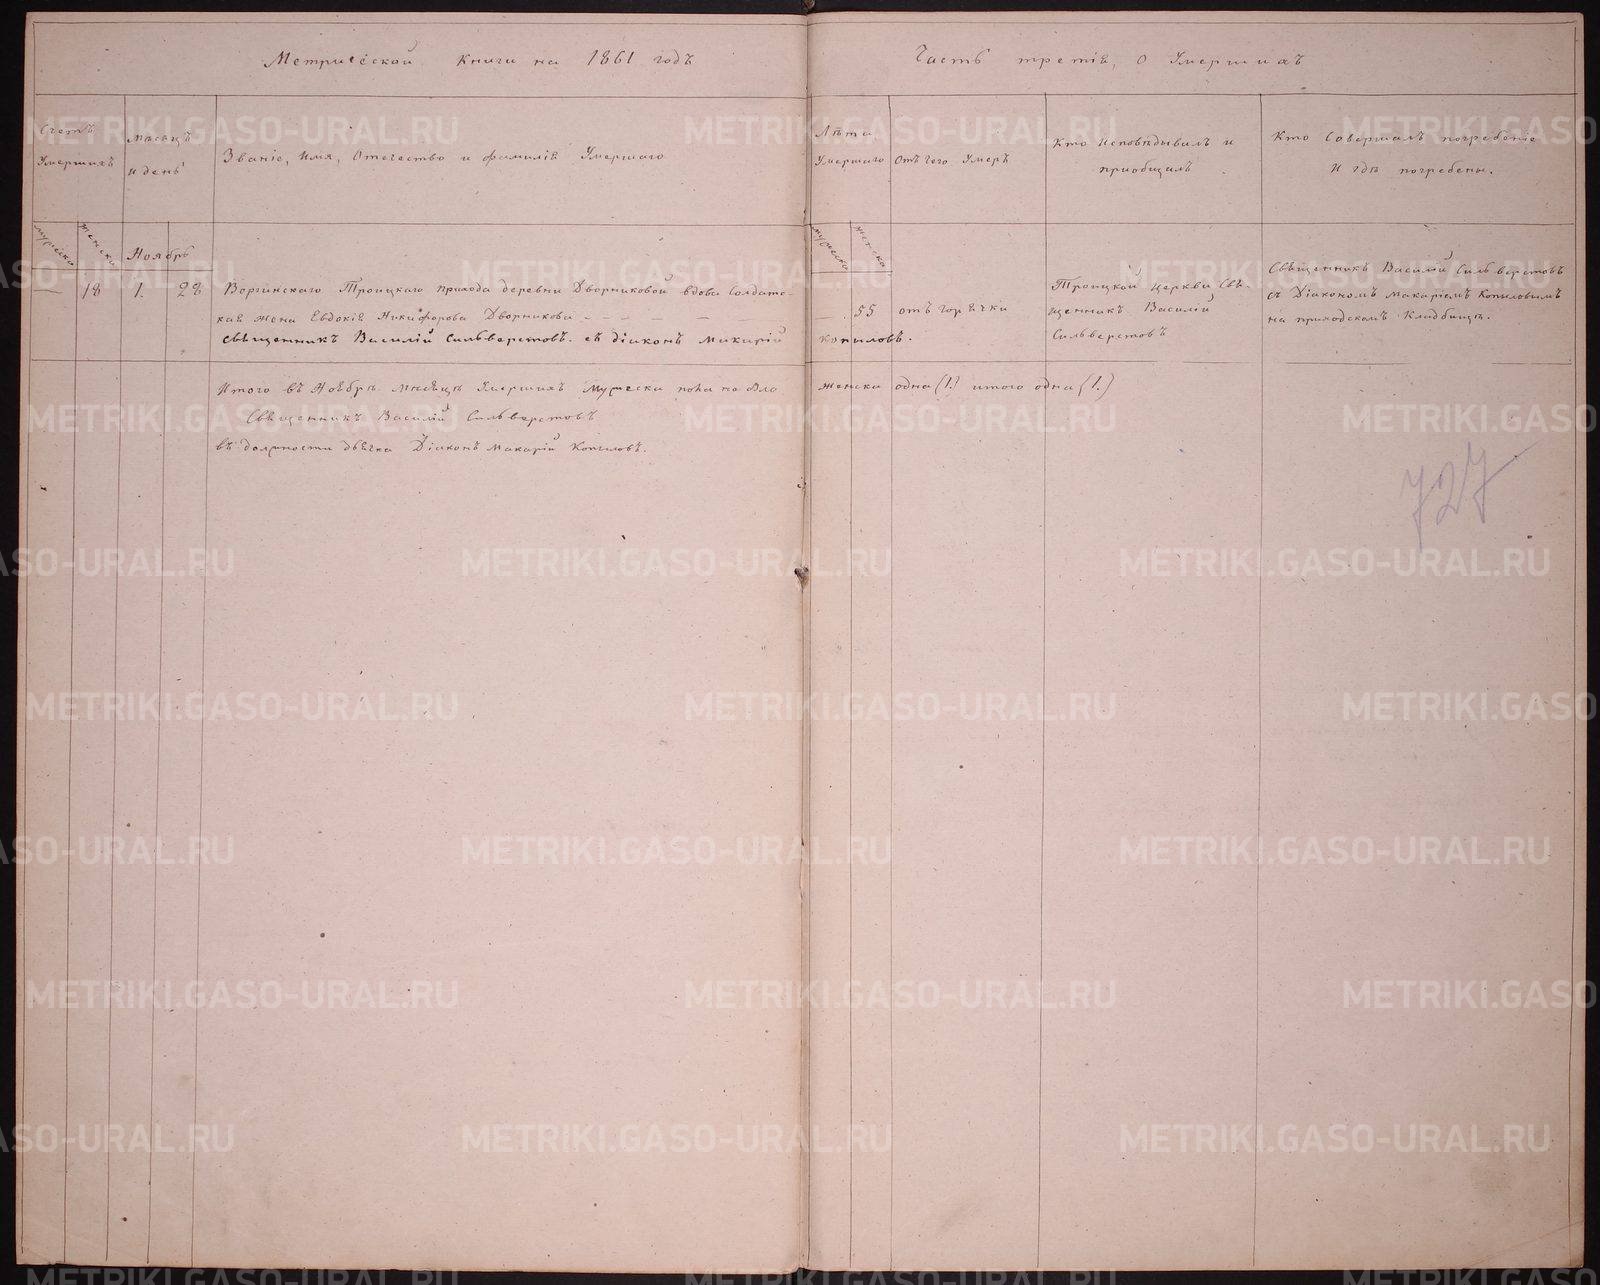 Метрической книги на 1861 годъ
Часть третія, о Умершихъ
Счетъ Умершихъ
Мѣсяцъ и день
Званіе, Имя, Отечество и фамилія Умершаго
Лѣта Умершаго
Отъ чего Умеръ
Кто Исповѣдывалъ и
приобщалъ
Кто Совершалъ погребеніе
И гдѣ погребены.
мужеска женска
Ноябрь
мужеска женска
— 18 1. 28 Троицкаго прихода деревни Дворниковой вдова Солдатс-
кая жена Евдокія Никифорова Дворникова — — — — —
Священникъ Василій Сильверстовъ. съ діаконъ Макарій Копыловъ.
— 55 отъ горячки
Троицкой церкви Свя-
щенникъ Василій
Сильверстовъ
Священникъ Василій Сильверстовъ
съ Діакономъ Макаріемъ Копыловымъ
на приходскомъ Кладбищѣ.
Итого въ Ноябрѣ Мѣсяцѣ Умершихъ Мужеска пола не было женска одна (1.) итого одна (1.)
Священникъ Василій Сильверстовъ
въ должности дьячка Діаконъ Макарій Копыловъ.
727
METRIKI.GASO-URAL.RU